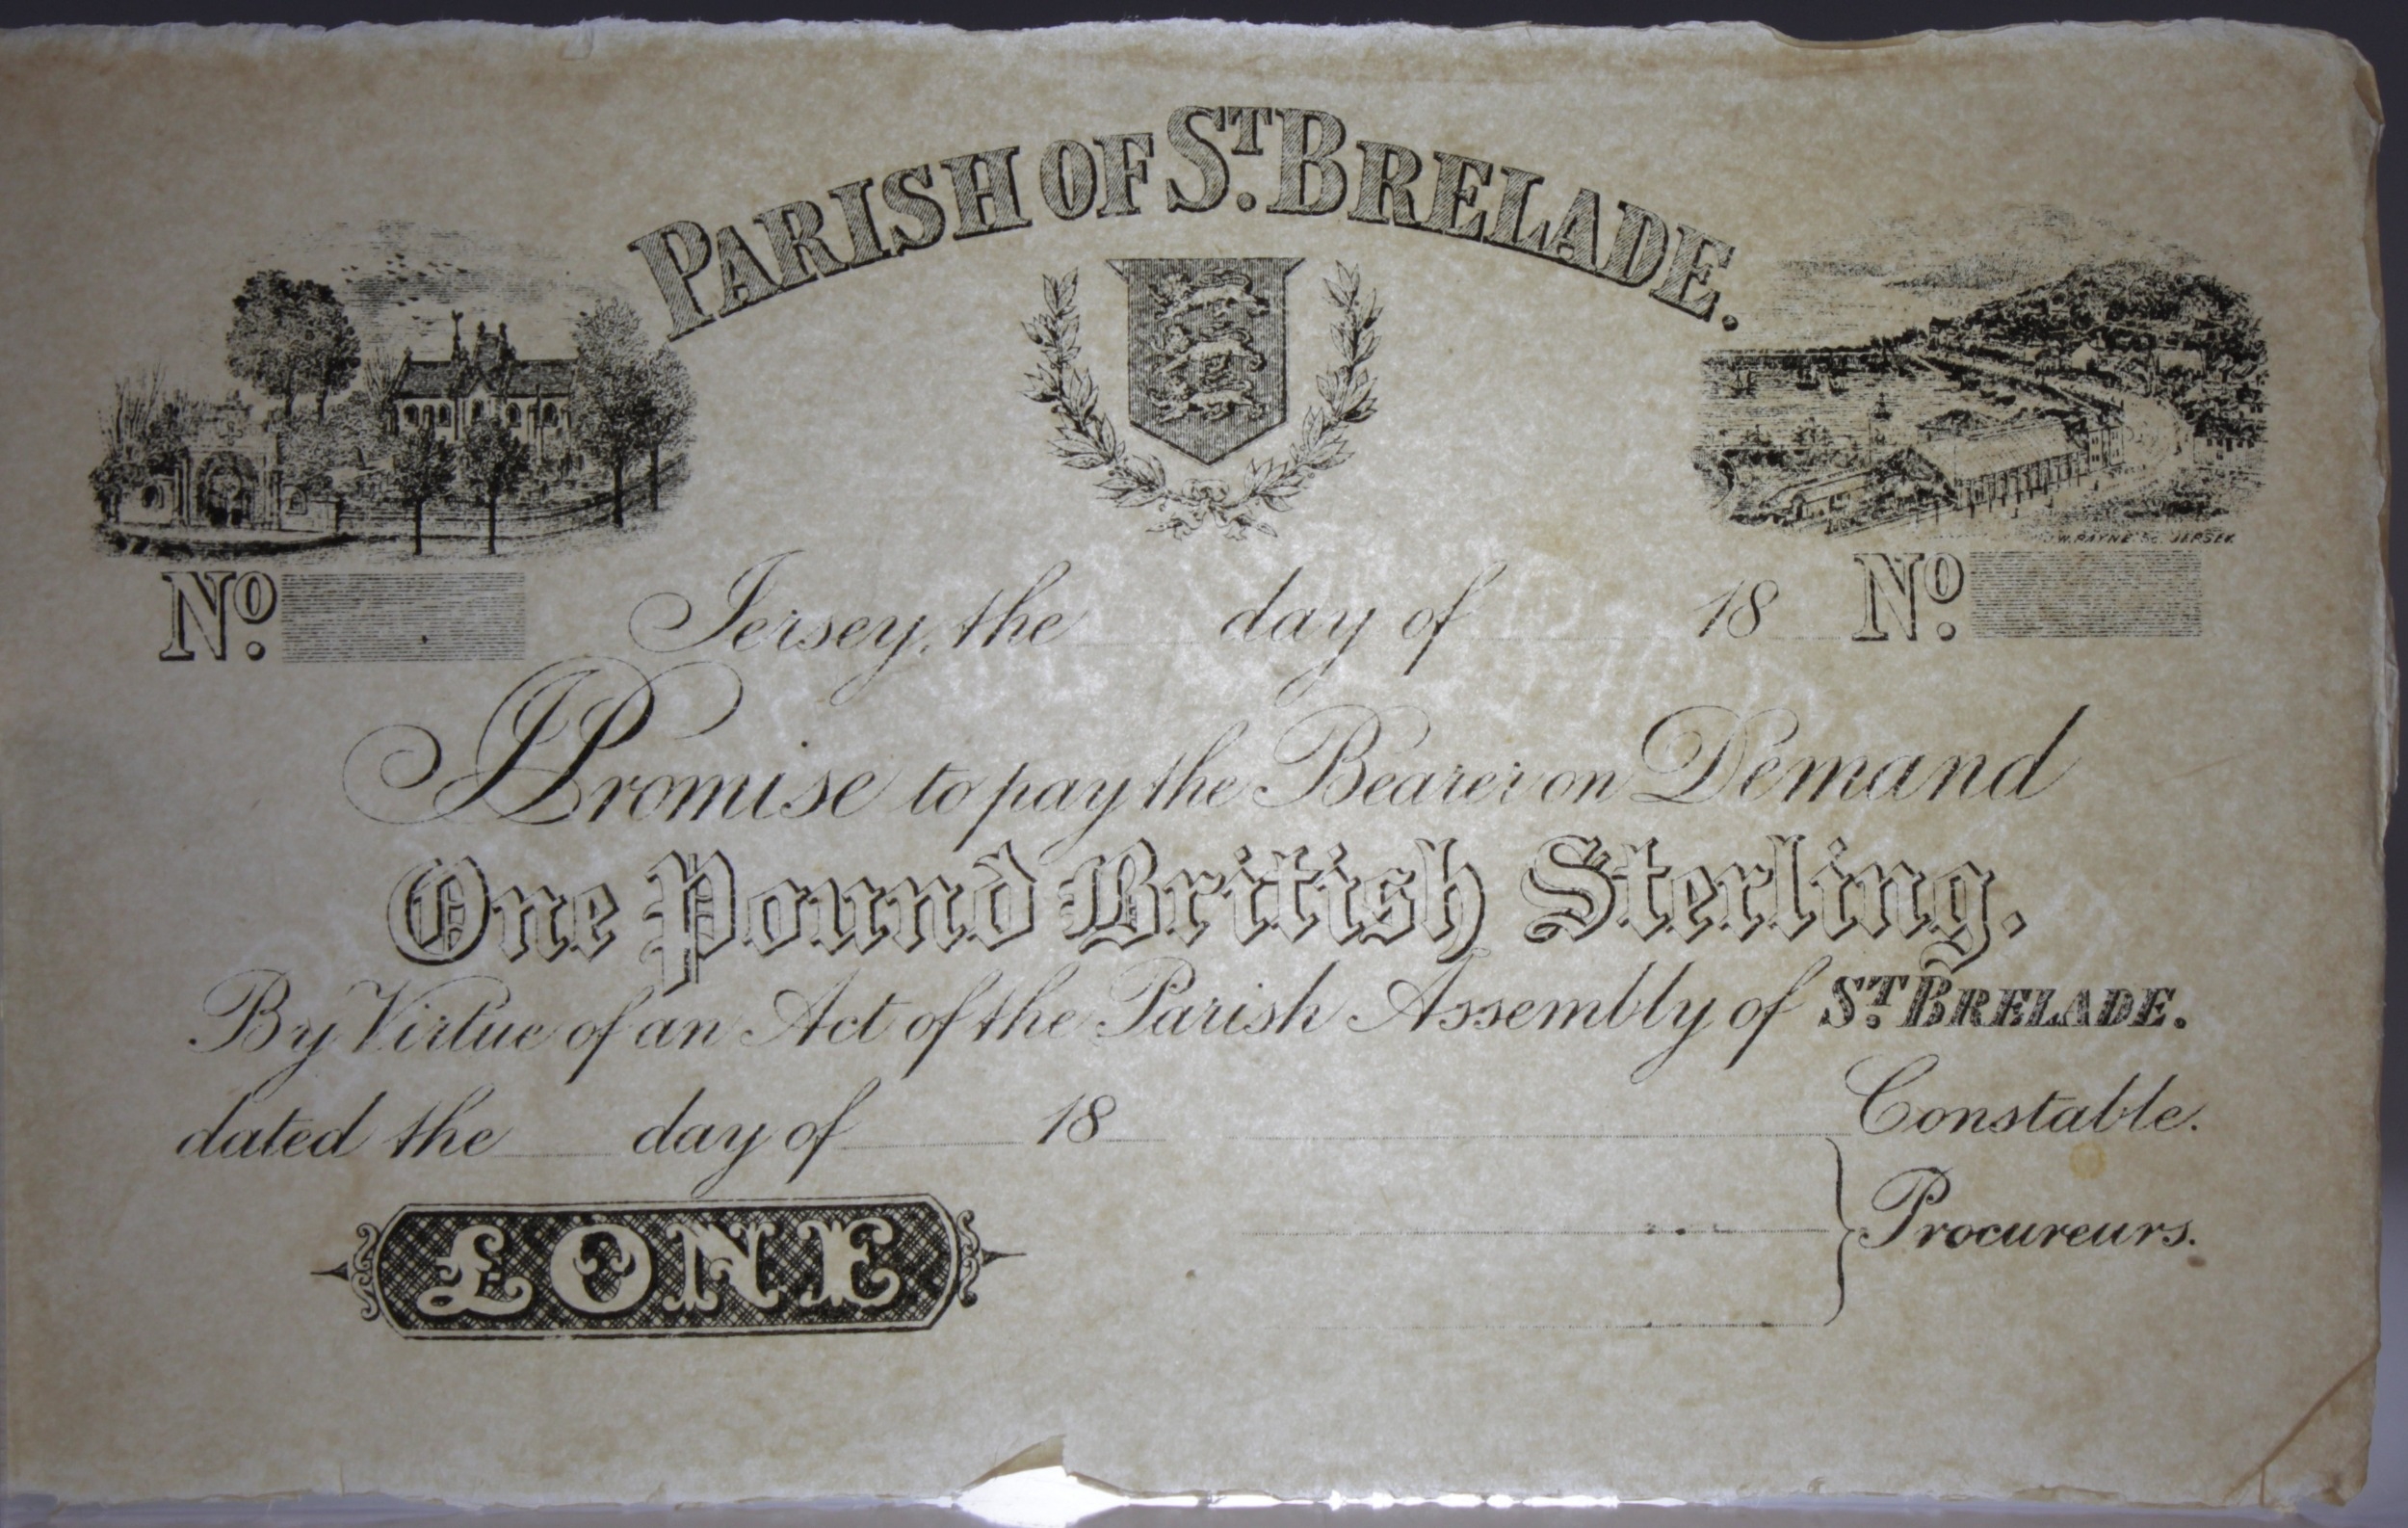 PARISH OF ST. BRELADE.
W. PAYNE Sc. JERSEY.
No. Jersey, the day of 18 No.
I Promise to pay the Bearer on Demand
One Pound British Sterling.
By Virtue of an Act of the Parish Assembly of ST. BRELADE.
dated the day of 18 Constable.
Procureurs.
£ ONE